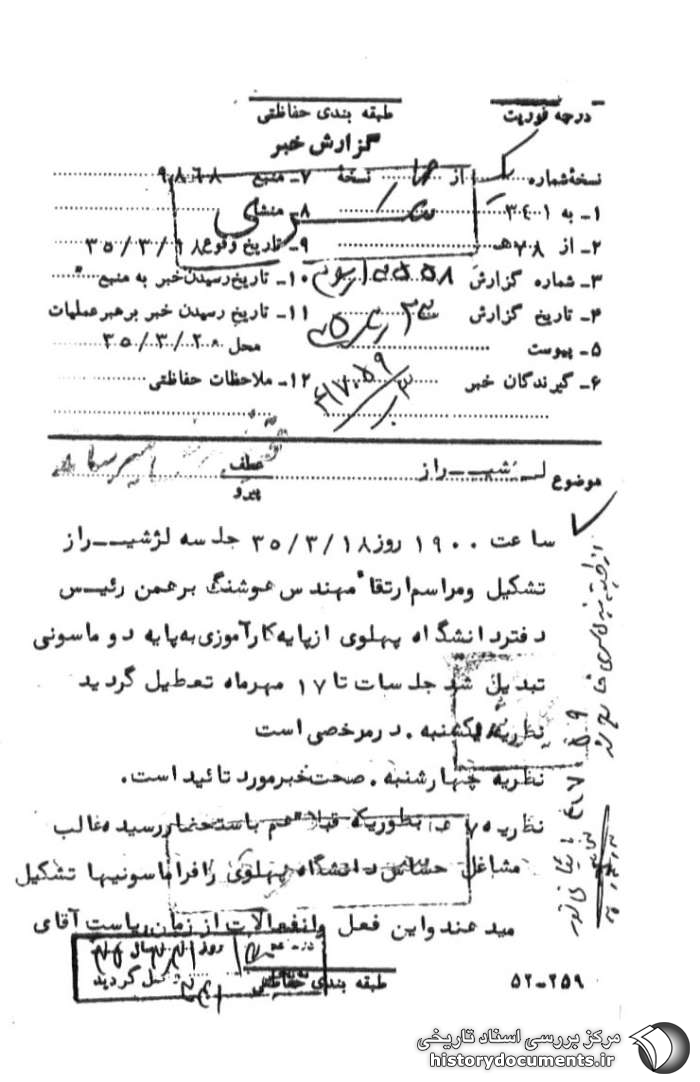 درجه فوریت
طبقه بندی حفاظتی
گزارش خبر
نسخهٔ شماره از نسخهٔ
۱- به ۳۴۱
۲- از ۷۸هـ
۳- شماره گزارش
۴- تاریخ گزارش
۵- پیوست
۶- گیرندگان خبر
۷- منبع ۹۸۶۸
۸- منشا
سری
۹- تاریخ وقوع ۳۵/۳/۱۸
۱۰- تاریخ رسیدن خبر به منبع
۱۱- تاریخ رسیدن خبر برهبر عملیات
محل ۳۵/۳/۲۰
۱۲- ملاحظات حفاظتی
موضوع لـژ شیــراز
عطف
پیرو
ساعت ۱۹۰۰ روز ۳۵/۳/۱۸ جلسه لژشیــراز
تشکیل ومراسم ارتقاء مهندس هوشنگ برهمن رئیــس
دفتردانشگاه پهلوی ازپایه کارآموزی به پایه دو ماسونی
تبدیل شد جلسات تا ۱۷ مهرماه تعطیل گردید
نظریه یکشنبه . درمرخصی است
نظریه چهارشنبه . صحت خبرمورد تائید است.
نظریه ۷هـ بطوریکه قبلا هم باستحضار رسیده غالب
مشاغل حساس دانشگاه پهلوی رافراماسونیها تشکیل
میدهندواین فعل وانفعالات اززمان ریاست آقای
طبقه بندی حفاظتی
۵۲-۲۵۹
مرکز بررسی اسناد تاریخی
historydocuments.ir